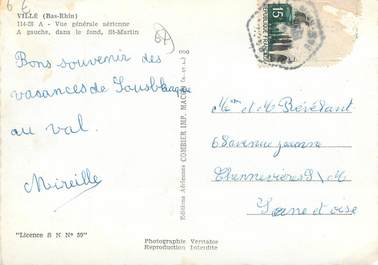 6 €
VILLÉ (Bas-Rhin)
114-28 A - Vue générale aérienne
A gauche, dans le fond, St-Martin
67
15
Bons souvenir des
vacances de
au val.
Mireille
"Licence S N N° 59"
Editions Aériennes COMBIER IMP. MACON
Photographie Véritable
Reproduction Interdite
Mme et M Révétant
68 avenue jeanne
Chennevières S/M
Seine et oise